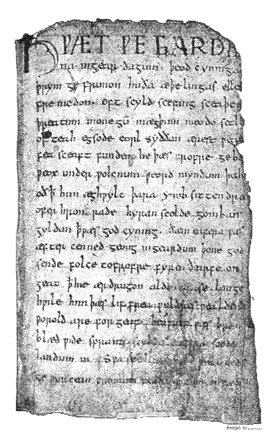 HǷÆT ǷE GARDE
na ingear dagum. þeod cyninga
þrym ge frunon huða æþelingas elle
fremedon. oft scyld scefing sceaþe
þreatum monegū mægþum meodo setl
of teah egsode eorl syððan ærest ƿe
sceaft funden he þæs frofre geb
ƿeox under ƿolcnum ƿeorð myndum þah
oð þ him æghƿylc þara ymb sittendra
ofer hron rade hyran scolde gomban
gyldan þ ƿæs god cyning. ðæm eafera ƿæs
æfter cenned geong ingeardum þone god
sende folce tofrofre fyren ðearfe on
geat þ hie ær drugon aldor ase. lange
hƿile him þæs lif frea ƿuldres ƿealdend
ƿorold are for geaf. beoƿulf ƿæs
blæd ƿide sprang scyldes eafera scede
landum in. Sƿa sceal